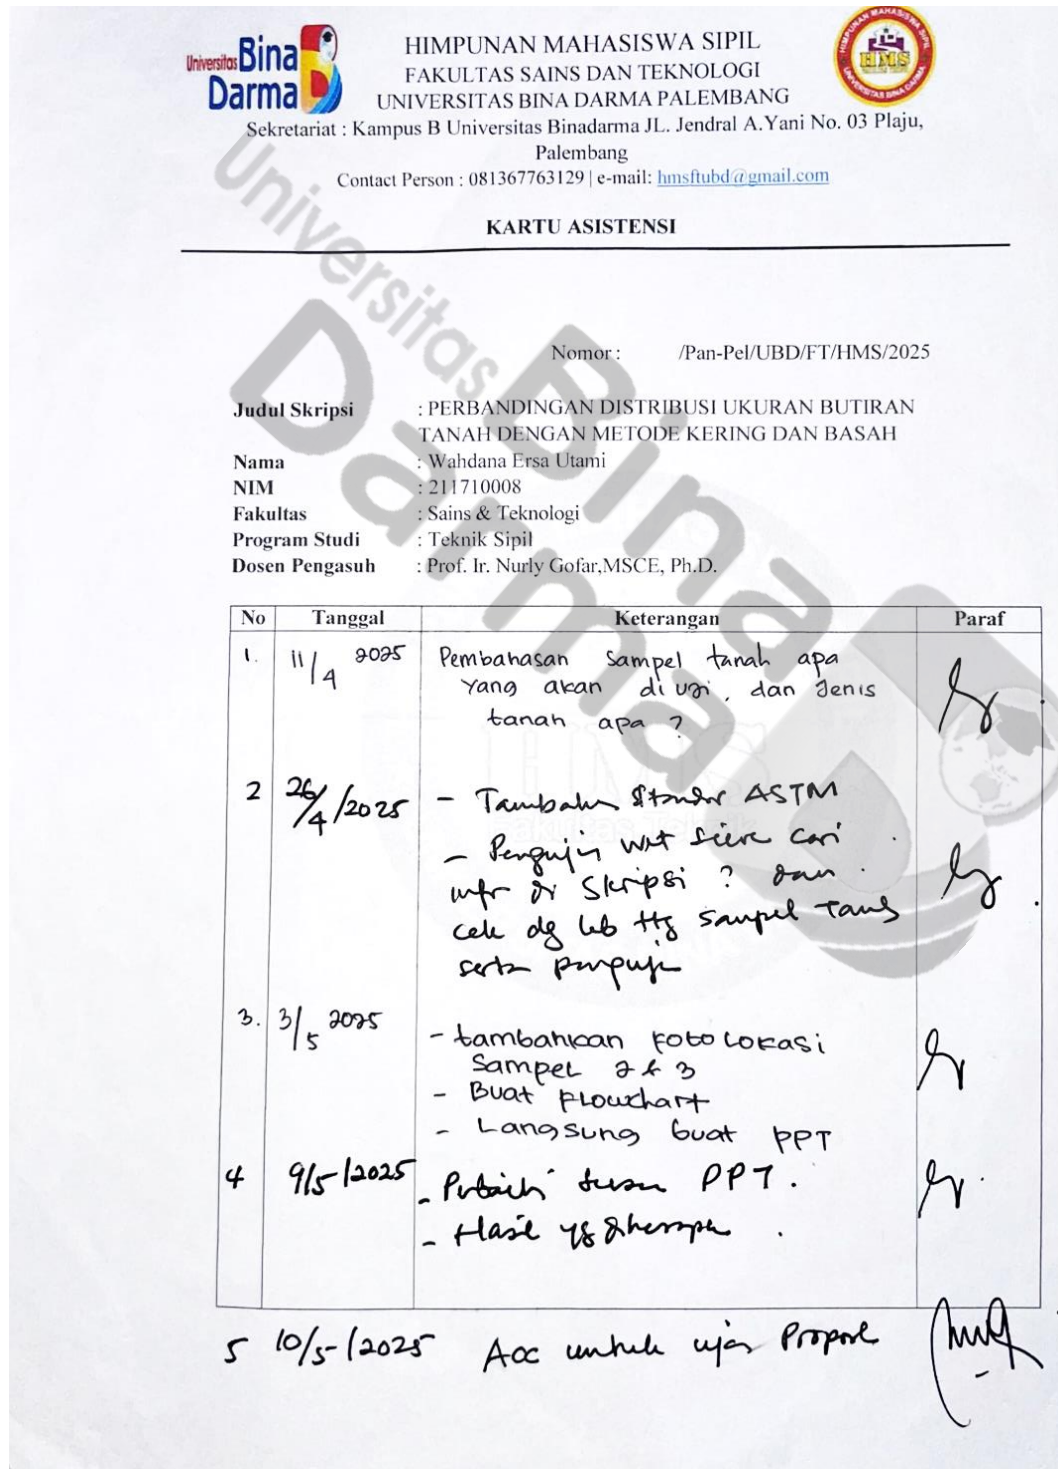 Universitas Bina Darma
HIMPUNAN MAHASISWA SIPIL
FAKULTAS SAINS DAN TEKNOLOGI
UNIVERSITAS BINA DARMA PALEMBANG
Sekretariat : Kampus B Universitas Binadarma JL. Jendral A.Yani No. 03 Plaju,
Palembang
Contact Person : 081367763129 | e-mail: hmsftubd@gmail.com
HIMPUNAN MAHASISWA SIPIL
HMS
UNIVERSITAS BINA DARMA
KARTU ASISTENSI
Universitas Bina Darma
Nomor : /Pan-Pel/UBD/FT/HMS/2025
Judul Skripsi : PERBANDINGAN DISTRIBUSI UKURAN BUTIRAN
TANAH DENGAN METODE KERING DAN BASAH
Nama : Wahdana Ersa Utami
NIM : 211710008
Fakultas : Sains & Teknologi
Program Studi : Teknik Sipil
Dosen Pengasuh : Prof. Ir. Nurly Gofar,MSCE, Ph.D.
No Tanggal Keterangan Paraf
1. 11/4 2025 Pembahasan Sampel tanah apa
yang akan di uji, dan Jenis
tanah apa ?
2 26/4/2025 - Tambahan Standar ASTM
- Pengujin wet sieve cari
di Skripsi ? dan
cek dg lab ttg sampel
serta
3. 3/5 2025 - tambahkan foto Lokasi
Sampel 2 & 3
- Buat Flowchart
- Langsung buat PPT
4 9/5-/2025 - PPT.
- Hasil yg
5 10/5-/2025 Acc untuk ujian